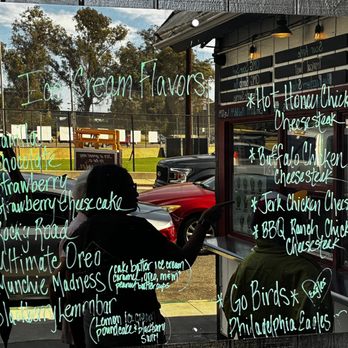 Ice Cream Flavors
Vanilla
Chocolate
Strawberry
Strawberry Cheesecake
Rocky Road
Ultimate Oreo
Munchie Madness (cake batter ice cream
caramel, oreo, m+m,
peanut butter cups)
Blackberry Lemonbar
(Lemon ice cream
poundcake + blackberry
swirl)
*Hot Honey Chicken
Cheesesteak
*Buffalo Chicken
Cheesesteak
*Jerk Chicken Cheese
*BBQ Ranch Chicken
Cheesesteak
*Go Birds*
Philadelphia Eagles